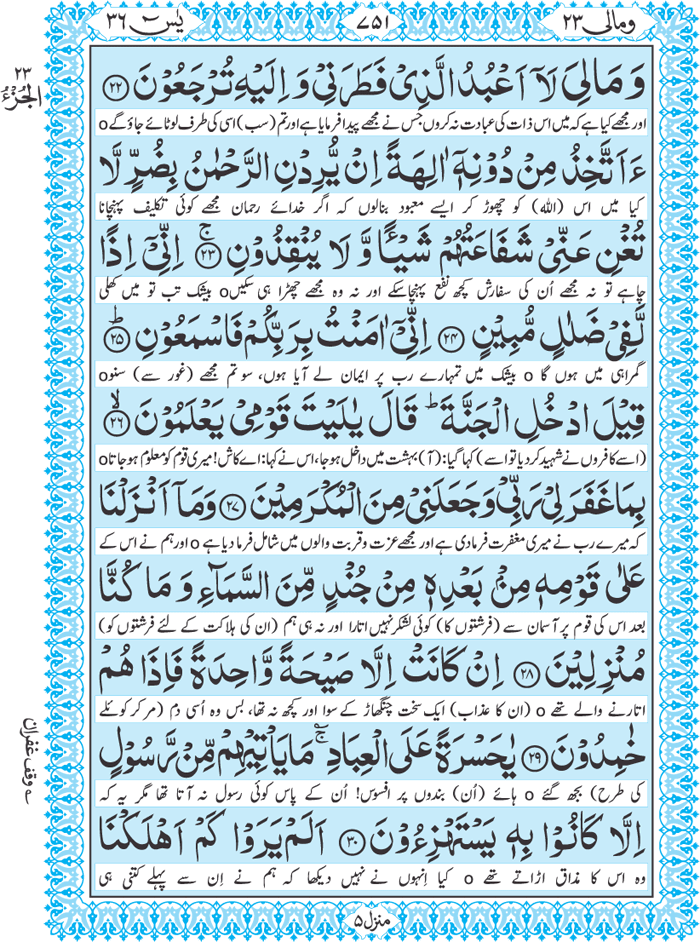 ومالی ۲۳
۷۵۱
یٰسٓ ۳۶
۲۳
الجُزْءُ
وَ مَالِیَ لَاۤ اَعْبُدُ الَّذِیْ فَطَرَنِیْ وَ اِلَیْهِ تُرْجَعُوْنَ ﴿۲۲﴾
اور مجھے کیا ہے کہ میں اس ذات کی عبادت نہ کروں جس نے مجھے پیدا فرمایا ہے اور تم (سب) اسی کی طرف لوٹائے جاؤ گے o
ءَاَتَّخِذُ مِنْ دُوْنِهٖۤ اٰلِهَةً اِنْ یُّرِدْنِ الرَّحْمٰنُ بِضُرٍّ لَّا
کیا میں اس (اللہ) کو چھوڑ کر ایسے معبود بنالوں کہ اگر خدائے رحمان مجھے کوئی تکلیف پہنچانا
تُغْنِ عَنِّیْ شَفَاعَتُهُمْ شَیْـًٔا وَّ لَا یُنْقِذُوْنِ ﴿۲۳﴾ۚ اِنِّیْۤ اِذًا
چاہے تو نہ مجھے اُن کی سفارش کچھ نفع پہنچاسکے اور نہ وہ مجھے چھڑا ہی سکیںo بیشک تب تو میں کھلی
لَّفِیْ ضَلٰلٍ مُّبِیْنٍ ﴿۲۴﴾ اِنِّیْۤ اٰمَنْتُ بِرَبِّكُمْ فَاسْمَعُوْنِ ﴿۲۵﴾ؕ
گمراہی میں ہوں گا o بیشک میں تمہارے رب پر ایمان لے آیا ہوں، سو تم مجھے (غور سے) سنوo
قِیْلَ ادْخُلِ الْجَنَّةَ ؕ قَالَ یٰلَیْتَ قَوْمِیْ یَعْلَمُوْنَ ﴿۲۶﴾ۙ
(اسے کافروں نے شہید کردیا تو اسے) کہا گیا: (آ) بہشت میں داخل ہوجا، اس نے کہا: اے کاش! میری قوم کو معلوم ہوجاتا o
بِمَا غَفَرَ لِیْ رَبِّیْ وَ جَعَلَنِیْ مِنَ الْمُكْرَمِیْنَ ﴿۲۷﴾ وَ مَاۤ اَنْزَلْنَا
کہ میرے رب نے میری مغفرت فرمادی ہے اور مجھے عزت و قربت والوں میں شامل فرما دیا ہے o اور ہم نے اس کے
عَلٰی قَوْمِهٖ مِنْۢ بَعْدِهٖ مِنْ جُنْدٍ مِّنَ السَّمَآءِ وَ مَا كُنَّا
بعد اس کی قوم پر آسمان سے (فرشتوں کا) کوئی لشکر نہیں اتارا اور نہ ہی ہم (ان کی ہلاکت کے لئے فرشتوں کو)
مُنْزِلِیْنَ ﴿۲۸﴾ اِنْ كَانَتْ اِلَّا صَیْحَةً وَّاحِدَةً فَاِذَا هُمْ
اتارنے والے تھے o (ان کا عذاب) ایک سخت چنگھاڑ کے سوا اور کچھ نہ تھا، بس وہ اُسی دم (مر کر کوئلے
خٰمِدُوْنَ ﴿۲۹﴾ یٰحَسْرَةً عَلَی الْعِبَادِ ۚؔ مَا یَاْتِیْهِمْ مِّنْ رَّسُوْلٍ
کی طرح) بجھ گئے o ہائے (اُن) بندوں پر افسوس! اُن کے پاس کوئی رسول نہ آتا تھا مگر یہ کہ
وقف غفران
اِلَّا كَانُوْا بِهٖ یَسْتَهْزِءُوْنَ ﴿۳۰﴾ اَلَمْ یَرَوْا كَمْ اَهْلَكْنَا
وہ اس کا مذاق اڑاتے تھے o کیا اِنہوں نے نہیں دیکھا کہ ہم نے اِن سے پہلے کتنی ہی
منزل ۵